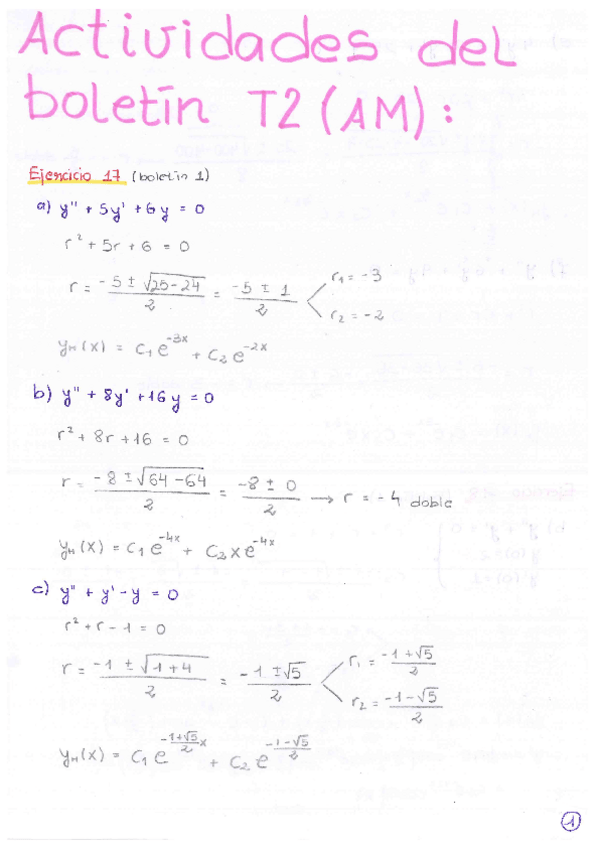 Actividades del
boletín T2 (AM):
Ejercicio 17 (boletín 1)
a) y'' + 5y' + 6y = 0
r² + 5r + 6 = 0
r = (-5 ± √(25-24))/2 = (-5 ± 1)/2 < r₁ = -3
r₂ = -2
y_H(x) = C₁e^(-3x) + C₂e^(-2x)
b) y'' + 8y' + 16y = 0
r² + 8r + 16 = 0
r = (-8 ± √(64-64))/2 = (-8 ± 0)/2 → r = -4 doble
y_H(x) = C₁e^(-4x) + C₂xe^(-4x)
c) y'' + y' - y = 0
r² + r - 1 = 0
r = (-1 ± √(1+4))/2 = (-1 ± √5)/2 < r₁ = (-1+√5)/2
r₂ = (-1-√5)/2
y_H(x) = C₁e^((-1+√5)/2 x) + C₂e^((-1-√5)/2)
1